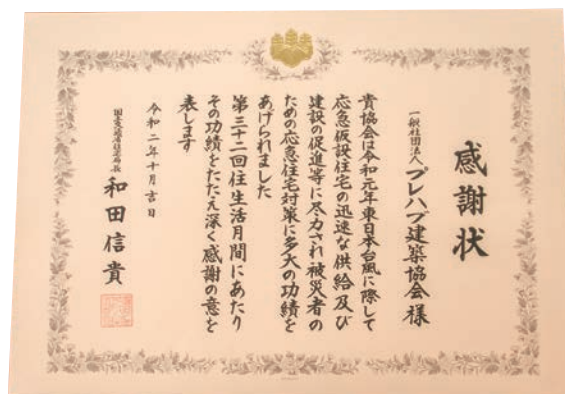 感謝状
一般社団法人プレハブ建築協会様
貴協会は令和元年東日本台風に際して
応急仮設住宅の迅速な供給及び
建設の促進等に尽力され被災者の
ための応急住宅対策に多大の功績を
あげられました
第三十二回住生活月間にあたり
その功績をたたえ深く感謝の意を
表します
令和二年十月吉日
国土交通省住宅局長
和田信貴